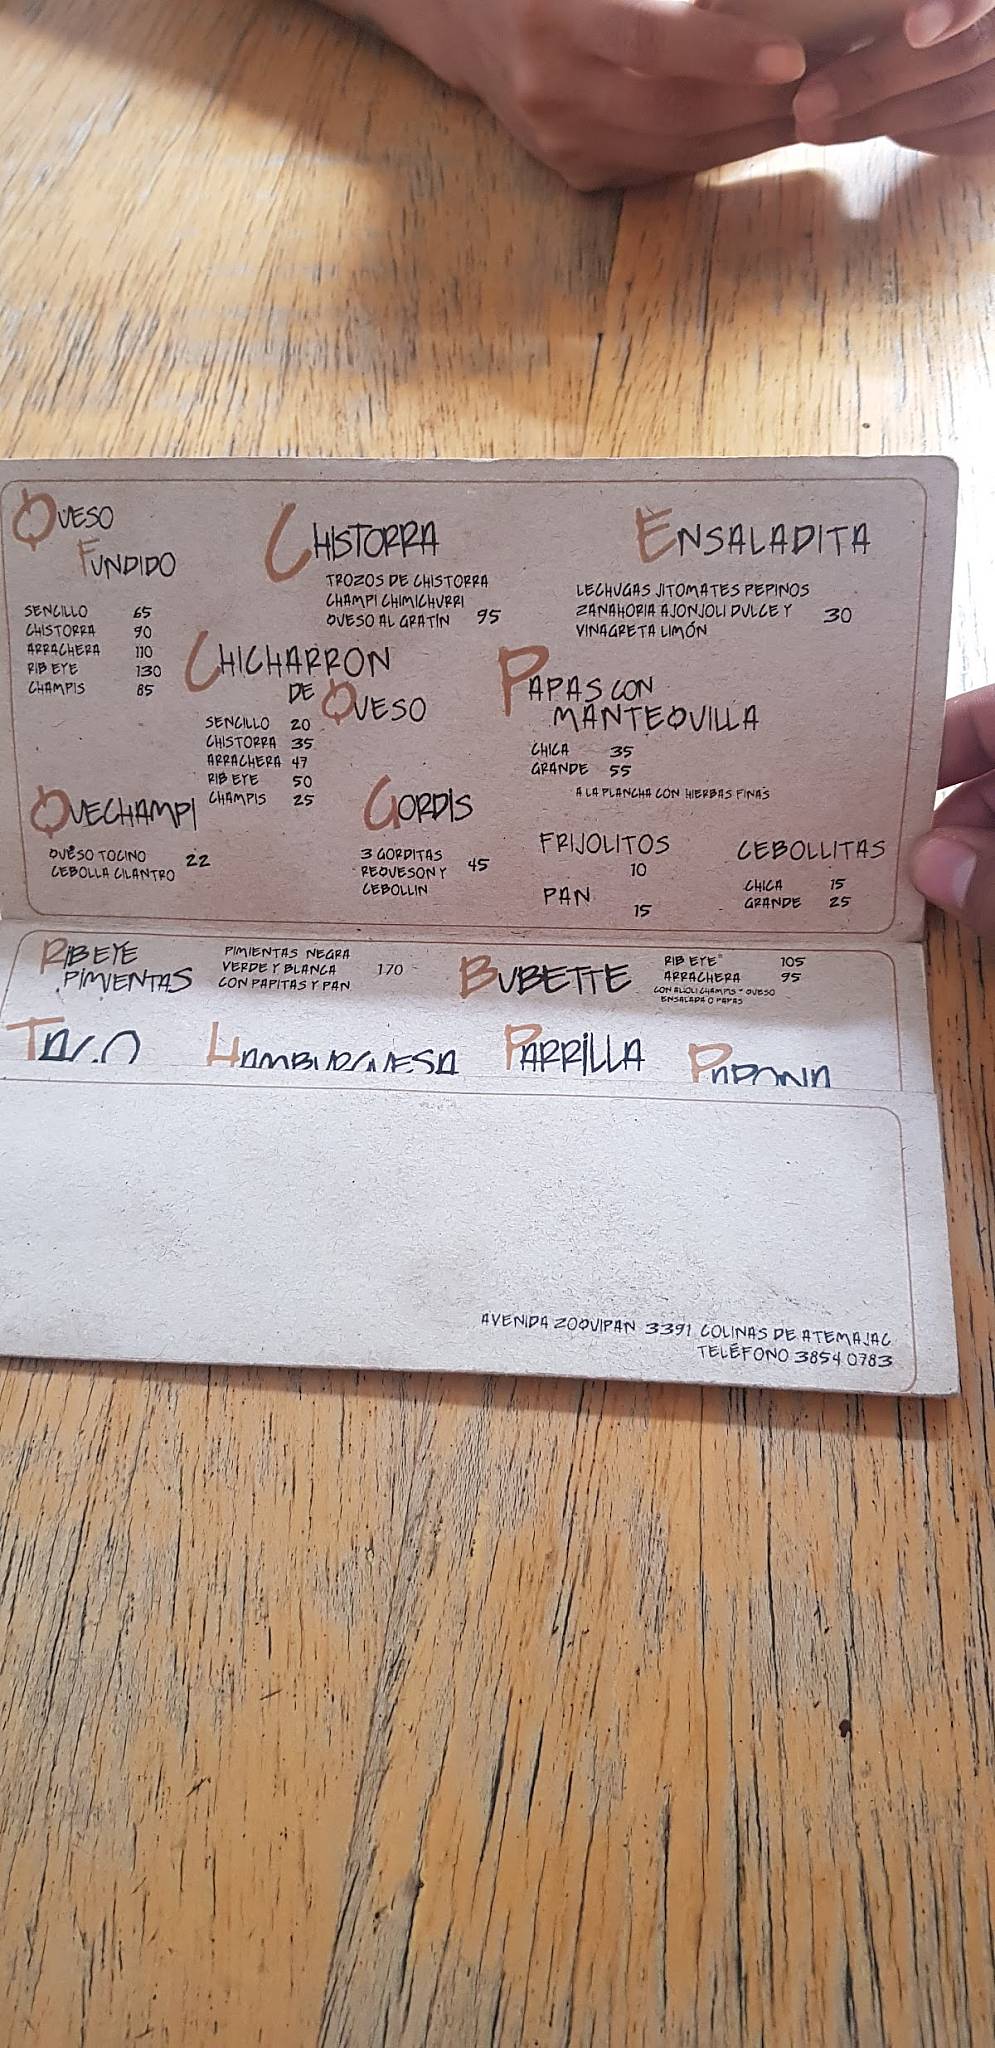 QUESO
FUNDIDO
SENCILLO 65
CHISTORRA 90
ARRACHERA 110
RIB EYE 130
CHAMPIS 85
CHISTORRA
TROZOS DE CHISTORRA
CHAMPI CHIMICHURRI
QUESO AL GRATÍN 95
ENSALADITA
LECHUGAS JITOMATES PEPINOS
ZANAHORIA AJONJOLI DULCE Y 30
VINAGRETA LIMÓN
CHICHARRON
DE QUESO
SENCILLO 20
CHISTORRA 35
ARRACHERA 47
RIB EYE 50
CHAMPIS 25
PAPAS CON
MANTEQUILLA
CHICA 35
GRANDE 55
A LA PLANCHA CON HIERBAS FINAS
QUECHAMPI
QUESO TOCINO 22
CEBOLLA CILANTRO
GORDIS
3 GORDITAS
REQUESON Y 45
CEBOLLIN
FRIJOLITOS
10
PAN
15
CEBOLLITAS
CHICA 15
GRANDE 25
RIBEYE
PIMIENTAS
PIMIENTAS NEGRA
VERDE Y BLANCA 170
CON PAPITAS Y PAN
BUBETTE
RIB EYE 105
ARRACHERA 95
CON ALIOLI CHAMPIS Y QUESO
ENSALADA O PAPAS
TACO
HAMBURGUESA
PARRILLA
PAPONA
AVENIDA ZOQUIPAN 3391 COLINAS DE ATEMAJAC
TELÉFONO 3854 0783